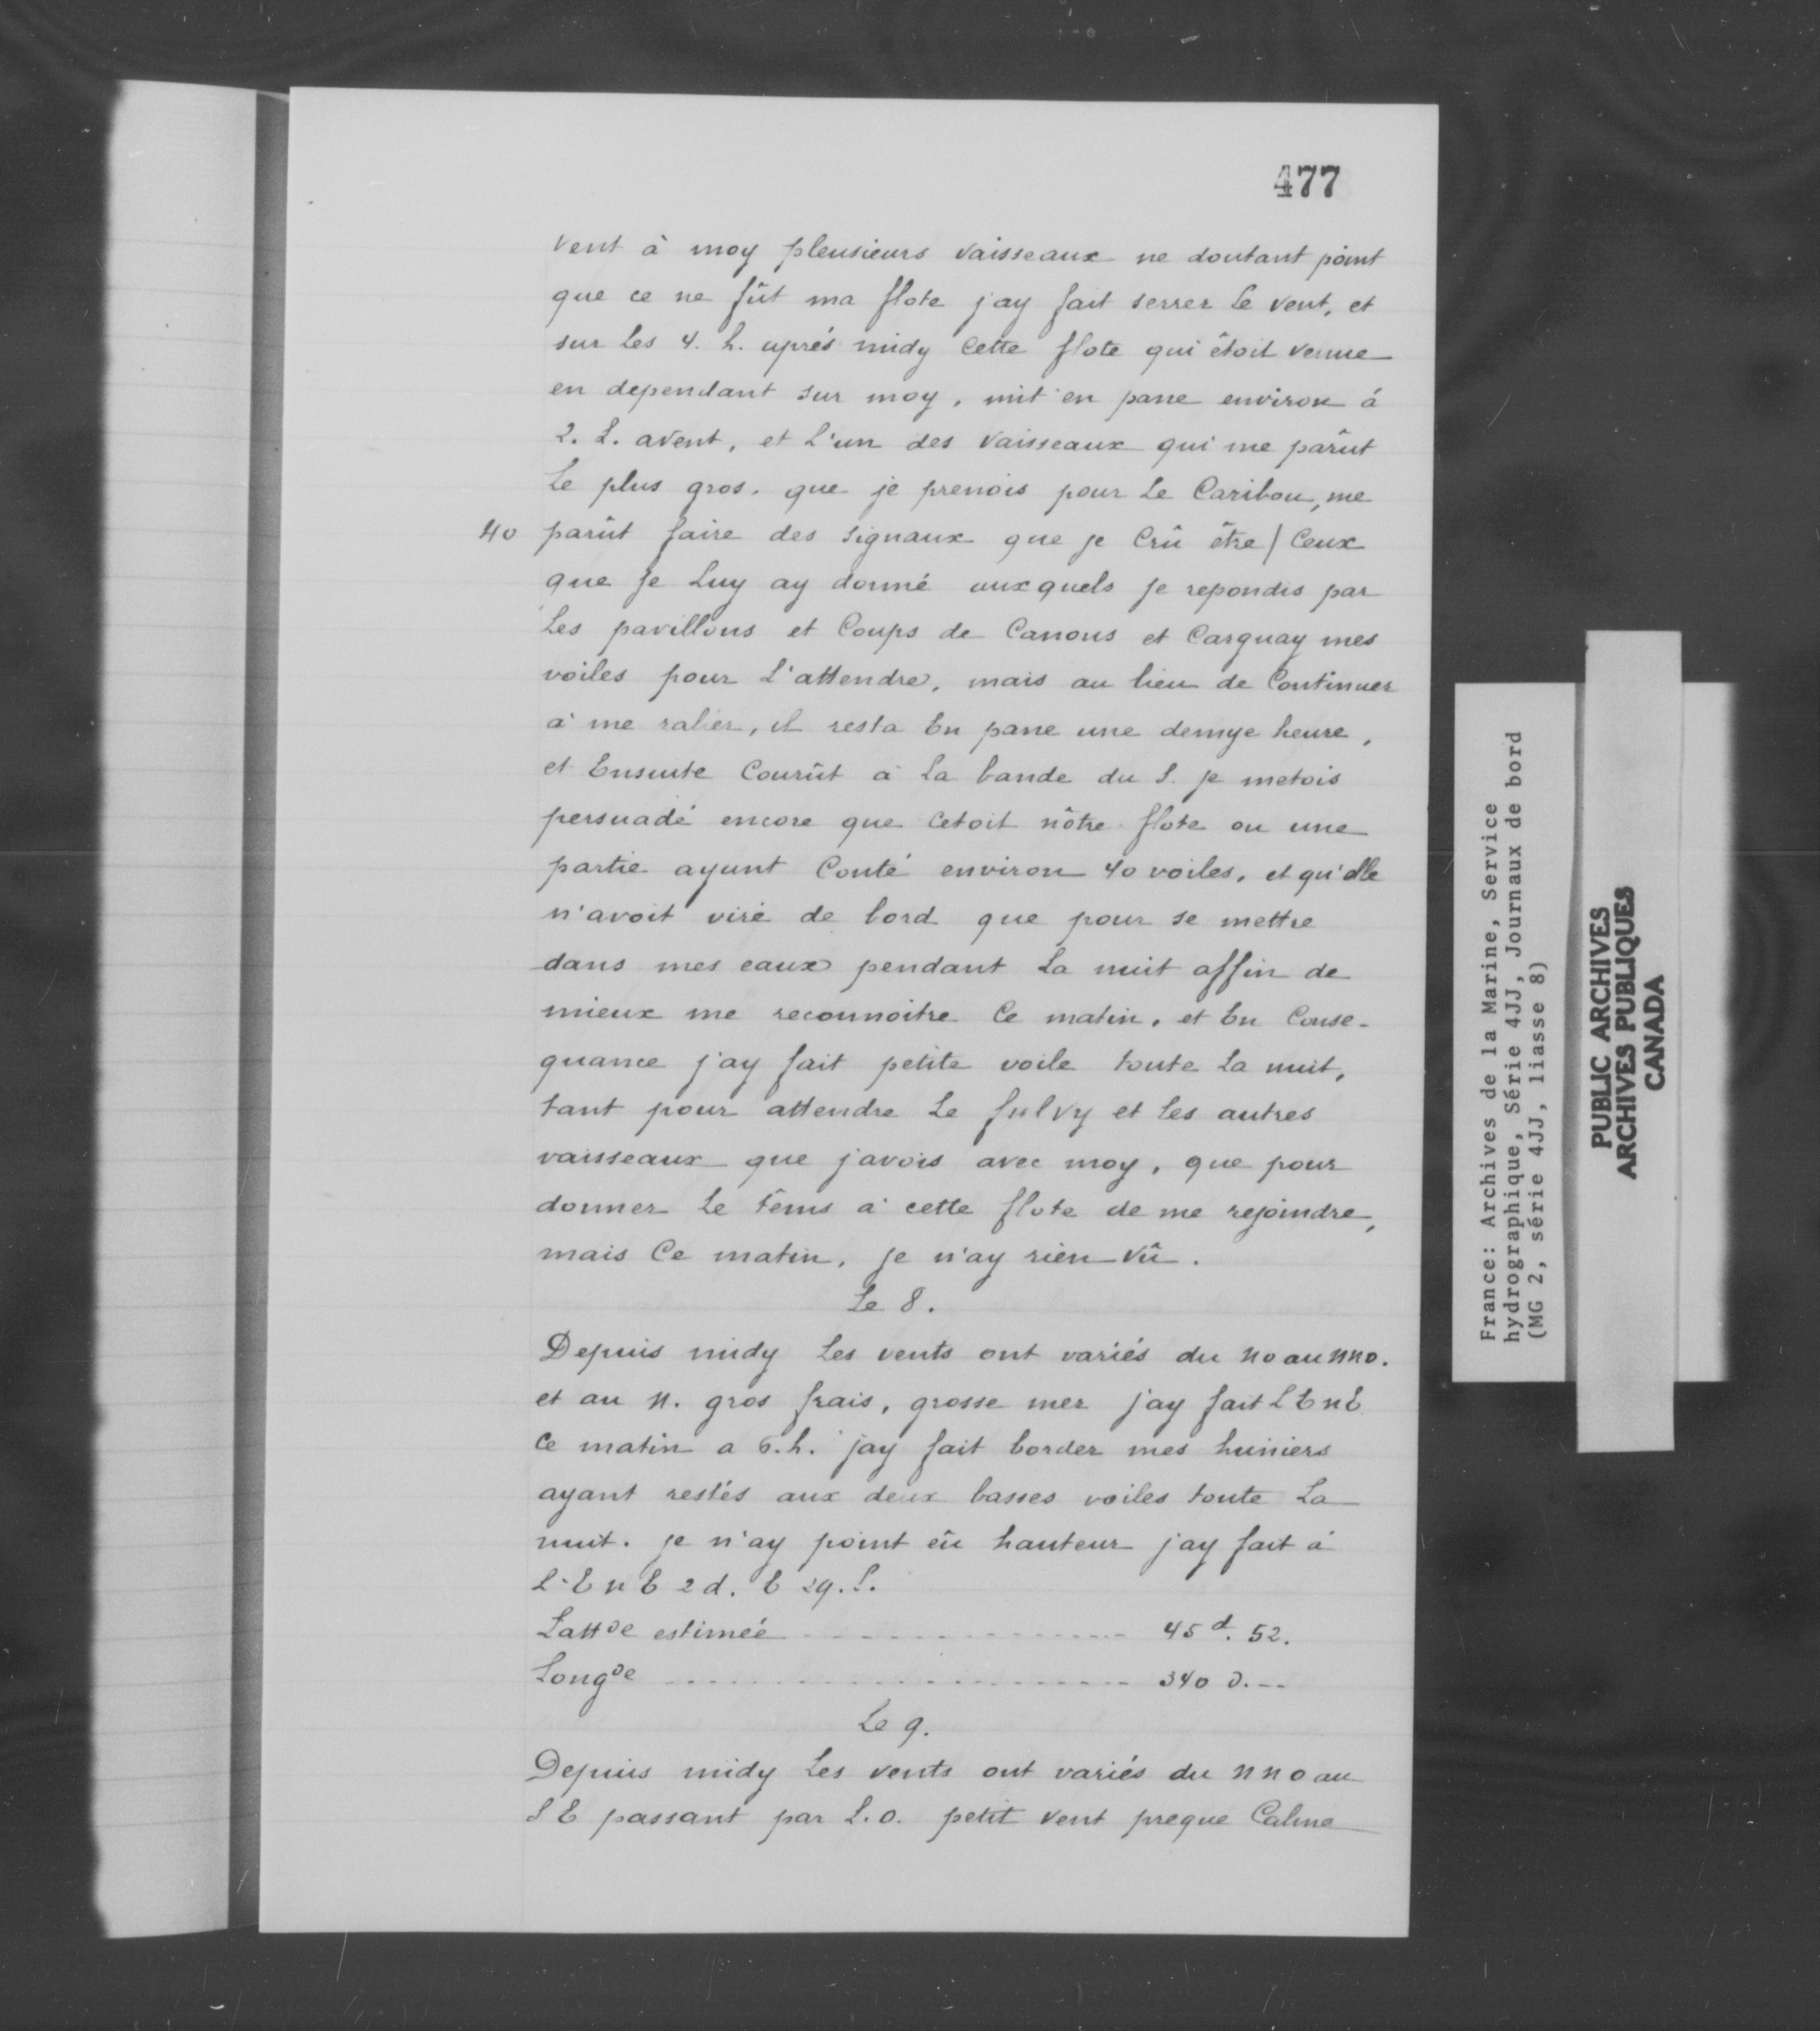 477
vent à moy pleusieurs vaisseaux ne doutant point
que ce ne fût ma flote j'ay fait serrer le vent, et
sur les 4. h. après midy cette flote qui étoit venue
en dependant sur moy, mit en pane environ à
2. L. avent, et l'un des vaisseaux qui me parût
le plus gros. que je prenois pour le Caribou, me
40 parût faire des signaux que je Crû être / Ceux
que je luy ay donné auxquels je repondis par
les pavillons et Coups de Canons et Carguay mes
voiles pour l'attendre, mais au lieu de Continuer
à me ralier, il resta En pane une demye heure,
et Ensuite Courût à la bande du S. je metois
persuadé encore que cetoit nôtre flote ou une
partie ayant Conté environ 40 voiles, et qu'elle
n'avoit viré de bord que pour se mettre
dans mes eaux pendant la nuit affin de
mieux me reconnoitre Ce matin, et En Conse-
quance j'ay fait petite voile toute la nuit,
tant pour attendre le fulvy et les autres
vaisseaux que j'avois avec moy, que pour
donner le têms à cette flote de me rejoindre,
mais Ce matin, je n'ay rien vû.
Le 8.
Depuis midy les vents ont variés du no au nno.
et au n. gros frais, grosse mer j'ay fait L'EnE
Ce matin a 6. h. jay fait border mes huniers
ayant restés aux deux basses voiles toute la
nuit. je n'ay point eû hauteur j'ay fait à
L'EnE 2 d. E 29. L.
Lattde estimée 45 d. 52.
Longde 340 d. --
Le 9.
Depuis midy les vents ont variés du nno au
SE passant par L.O. petit vent preque Calme
France: Archives de la Marine, Service
hydrographique, Série 4JJ, Journaux de bord
(MG 2, série 4JJ, liasse 8)
PUBLIC ARCHIVES
ARCHIVES PUBLIQUES
CANADA